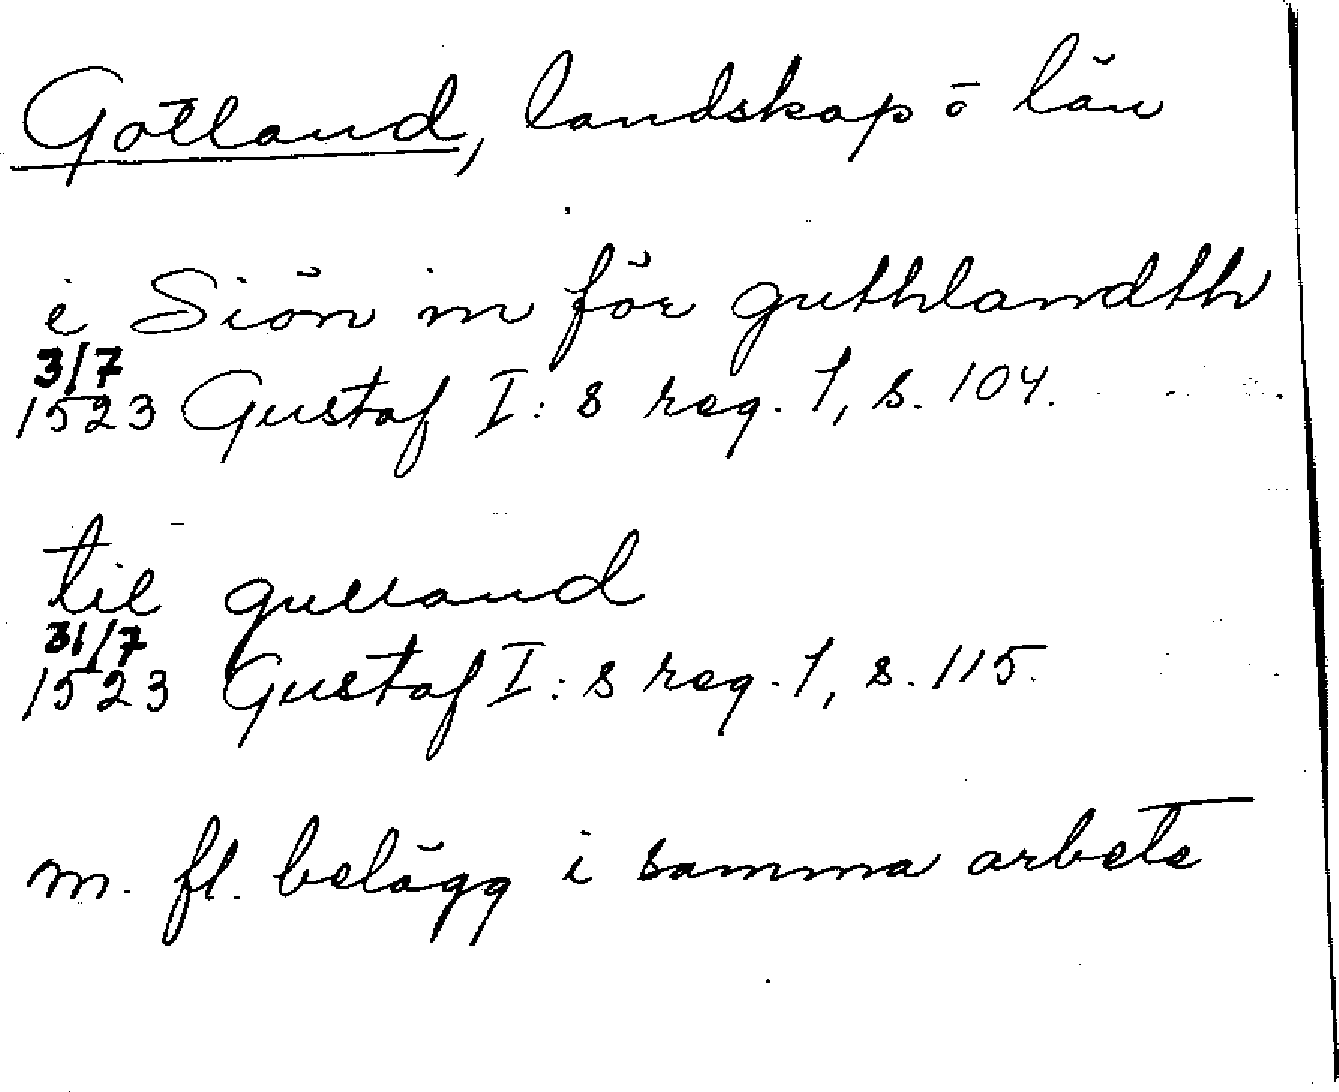 Gotland, landskap o län
i Siön in för guthlandth
3/7
1523 Gustaf I:s reg. 1, s. 104.
til gulland
31/7
1523 Gustaf I:s reg. 1, s. 115.
m. fl. belägg i samma arbete